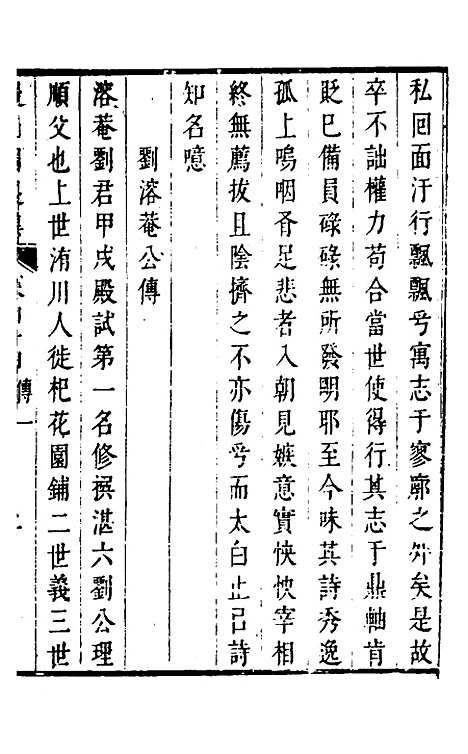 私囘面汙行飄飄乎寓志于寥廓之外矣是故
卒不詘權力苟合當世使得行其志于鼎軸肯
貶已備員碌碌無所發明耶至今味其詩秀逸
孤上嗚咽吞足悲者入朝見嫉意實怏怏宰相
終無薦拔且陰擠之不亦傷乎而太白止己詩
知名噫
劉溶菴公傳
溶菴劉君甲戌殿試第一名修撰湛六劉公理
順父也上世洧川人徙杞花園鋪二世義三世
傳一